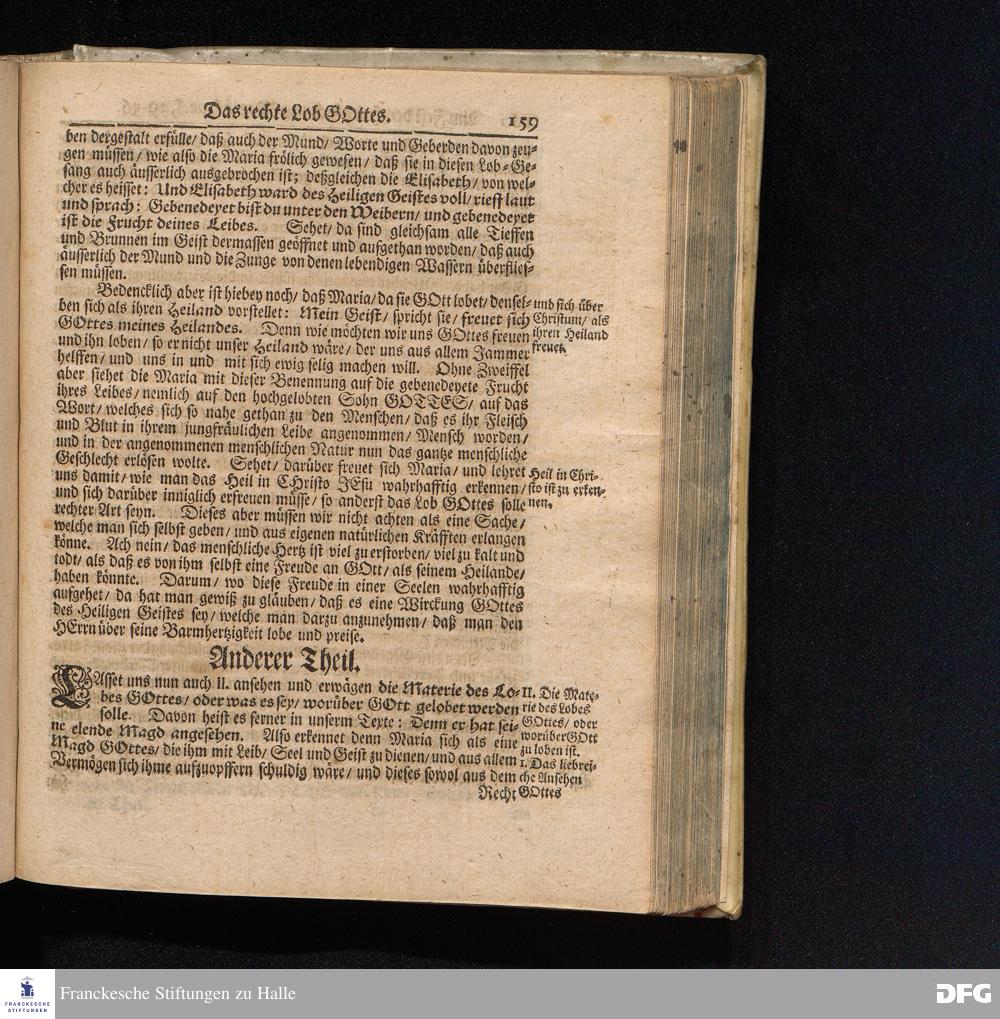 Das rechte Lob GOttes.
159
ben dergestalt erfülle/ daß auch der Mund/ Worte und Geberden davon zeu-
gen müssen/ wie also die Maria frölich gewesen/ daß sie in diesen Lob-Ge-
sang auch äusserlich ausgebrochen ist; deßgleichen die Elisabeth/ von wel-
cher es heisset: Und Elisabeth ward des Heiligen Geistes voll/ rieff laut
und sprach: Gebenedeyet bist du unter den Weibern/ und gebenedeyet
ist die Frucht deines Leibes. Sehet/ da sind gleichsam alle Tieffen
und Brunnen im Geist dermassen geöffnet und aufgethan worden/ daß auch
äusserlich der Mund und die Zunge von denen lebendigen Wassern überflies-
sen müssen.
Bedencklich aber ist hiebey noch/ daß Maria/ da sie GOtt lobet/ densel-
ben sich als ihren Heiland vorstellet: Mein Geist/ spricht sie/ freuet sich
GOttes meines Heilandes. Denn wie möchten wir uns GOttes freuen
und ihn loben/ so er nicht unser Heiland wäre/ der uns aus allem Jammer
helffen/ und uns in und mit sich ewig selig machen will. Ohne Zweiffel
aber siehet die Maria mit dieser Benennung auf die gebenedeyete Frucht
ihres Leibes/ nemlich auf den hochgelobten Sohn GOTTES/ auf das
Wort/ welches sich so nahe gethan zu den Menschen/ daß es ihr Fleisch
und Blut in ihrem jungfräulichen Leibe angenommen/ Mensch worden/
und in der angenommenen menschlichen Natur nun das gantze menschliche
Geschlecht erlösen wolte. Sehet/ darüber freuet sich Maria/ und lehret
uns damit/ wie man das Heil in CHristo JEsu wahrhafftig erkennen/
und sich darüber inniglich erfreuen müsse/ so anderst das Lob GOttes solle
rechter Art seyn. Dieses aber müssen wir nicht achten als eine Sache/
welche man sich selbst geben/ und aus eigenen natürlichen Kräfften erlangen
könne. Ach nein/ das menschliche Hertz ist viel zu erstorben/ viel zu kalt und
todt/ als daß es von ihm selbst eine Freude an GOtt/ als seinem Heilande/
haben könnte. Darum/ wo diese Freude in einer Seelen wahrhafftig
aufgehet/ da hat man gewiß zu gläuben/ daß es eine Wirckung GOttes
des Heiligen Geistes sey/ welche man darzu anzunehmen/ daß man den
HErrn über seine Barmhertzigkeit lobe und preise.
und sich über
Christum/ als
ihren Heiland
freuet.
Heil in Chri-
sto ist zu erken-
nen.
Anderer Theil.
LAsset uns nun auch II. ansehen und erwägen die Materie des Lo-
bes GOttes/ oder was es sey/ worüber GOtt gelobet werden
solle. Davon heist es ferner in unserm Texte: Denn er hat sei-
ne elende Magd angesehen. Also erkennet denn Maria sich als eine
Magd GOttes/ die ihm mit Leib/ Seel und Geist zu dienen/ und aus allem
Vermögen sich ihme aufzuopffern schuldig wäre/ und dieses sowol aus dem
Recht
II. Die Mate-
rie des Lobes
GOttes/ oder
worüber GOtt
zu loben ist.
1. Das liebrei-
che Ansehen
GOttes
Franckesche Stiftungen zu Halle
FRANCKESCHE
STIFTUNGEN
DFG